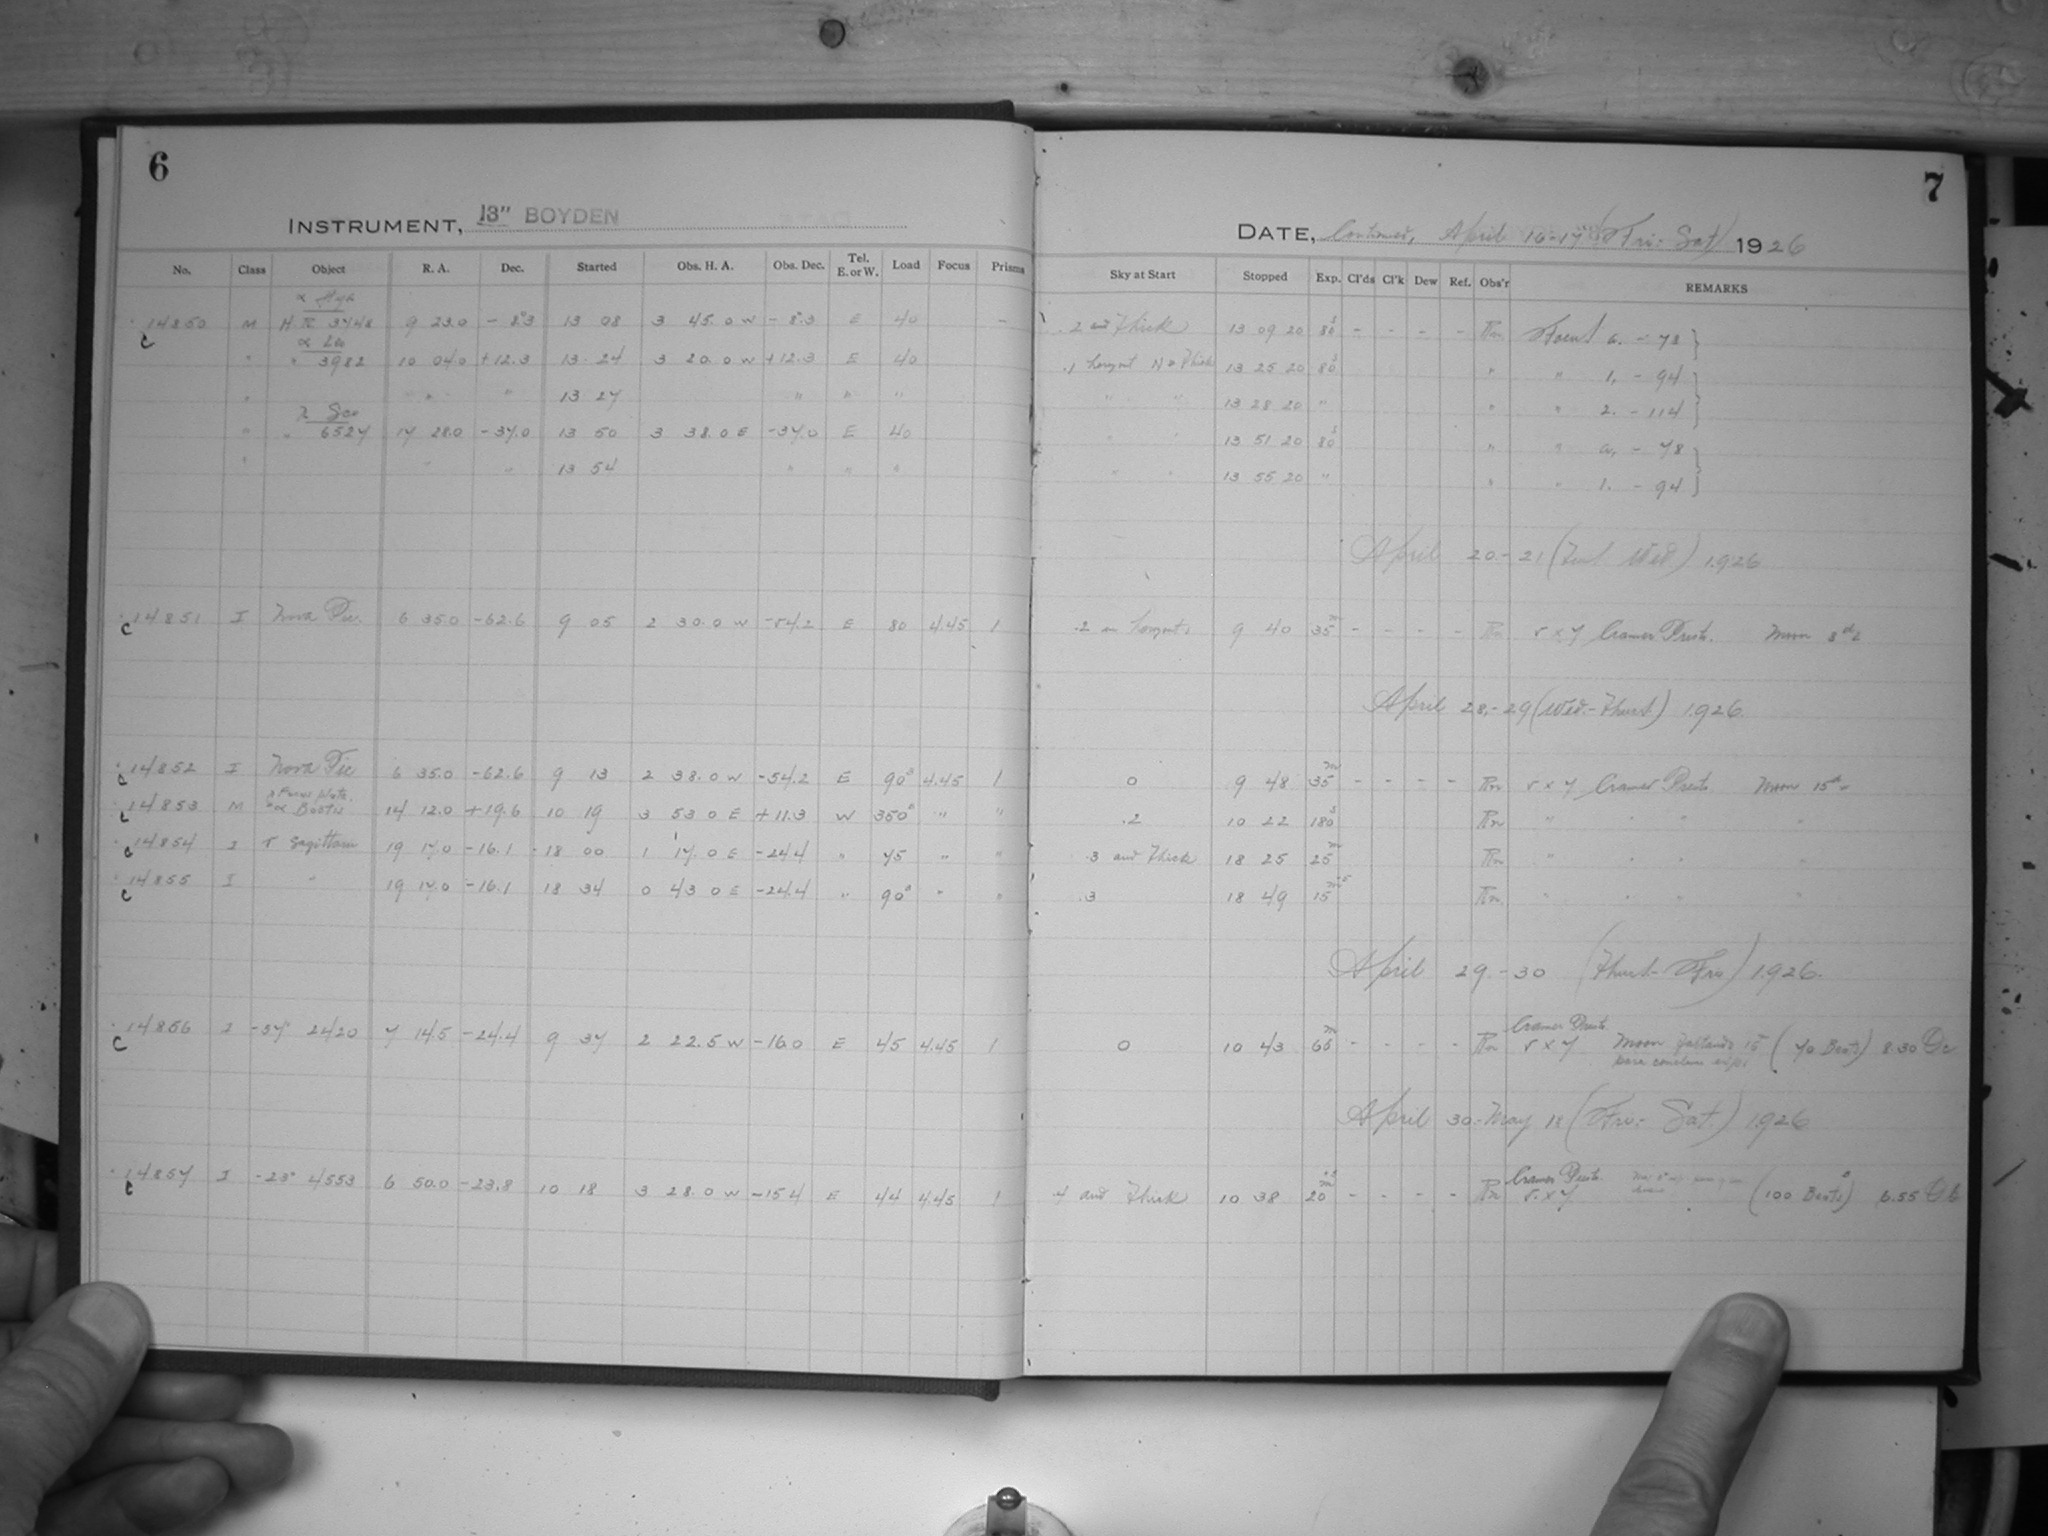 6
INSTRUMENT, 13" BOYDEN
No. Class Object R. A. Dec. Started Obs. H. A. Obs. Dec. Tel. E. or W. Load Focus Prisms
α Hya
14850 M H 3748 9 23.0 - 8.3 13 08 3 45.0 W - 8.3 E 40 -
C
α Leo
" " 3982 10 04.0 +12.3 13 24 3 20.0 W +12.3 E 40
" " " 13 27 " " "
λ Sco
" " 6527 17 28.0 -37.0 13 50 3 38.0 E -37.0 E 40
" " " 13 54 " " "
14851 I Nova Pic. 6 35.0 -62.6 9 05 2 30.0 W -54.2 E 80 4.45 1
C
14852 I Nova Pic 6 35.0 -62.6 9 13 2 38.0 W -54.2 E 90 4.45 1
C
Focus plate.
14853 M α Bootis 14 12.0 +19.6 10 19 3 53 0 E +11.3 W 350 " "
C
14854 I Sagittarii 19 17.0 -16.1 18 00 1 17.0 E -24.4 " 75 " "
C
14855 I " 19 17.0 -16.1 18 34 0 43 0 E -24.4 " 90 " "
C
14856 I -37° 2420 7 14.5 -24.4 9 37 2 22.5 W -16.0 E 45 4.45 1
C
14857 I -23° 4553 6 50.0 -23.8 10 18 3 28.0 W -15.4 E 44 4.45 1
C
7
DATE, Continued, April 16-17 (Fri.- Sat) 1926
Sky at Start Stopped Exp. Cl'ds Cl'k Dew Ref. Obs'r REMARKS
.2 Thick 13 09 20 80s - - - - Focus a. - 78 }
.1 N Thick 13 25 20 80s " " 1. - 94 }
" " 13 28 20 " " " 2. - 114 }
" " 13 51 20 80s " " a. - 78 }
" " 13 55 20 " " " 1. - 94 }
April 20 - 21 ( Wed) 1926
.2 9 40 35m - - - - 5 x 7 Cramer Presto. Moon 8
April 28.- 29 (Wed.- Thurs.) 1926.
0 9 48 35m - - - - 5 x 7 Cramer Presto Moon 15
.2 10 22 180s " " " "
.3 and Thick 18 25 25m " " " "
.3 18 49 15m " " " "
April 29 - 30 (Thurs.- Fri.) 1926.
Cramer Presto.
0 10 43 66m - - - - 5 x 7 Moon (70 Beats) 8.30
April 30.- May 1 (Fri.- Sat.) 1926
Cramer Presto.
.4 and Thick 10 38 20m - - - - 5 x 7 (100 Beats) 6.55